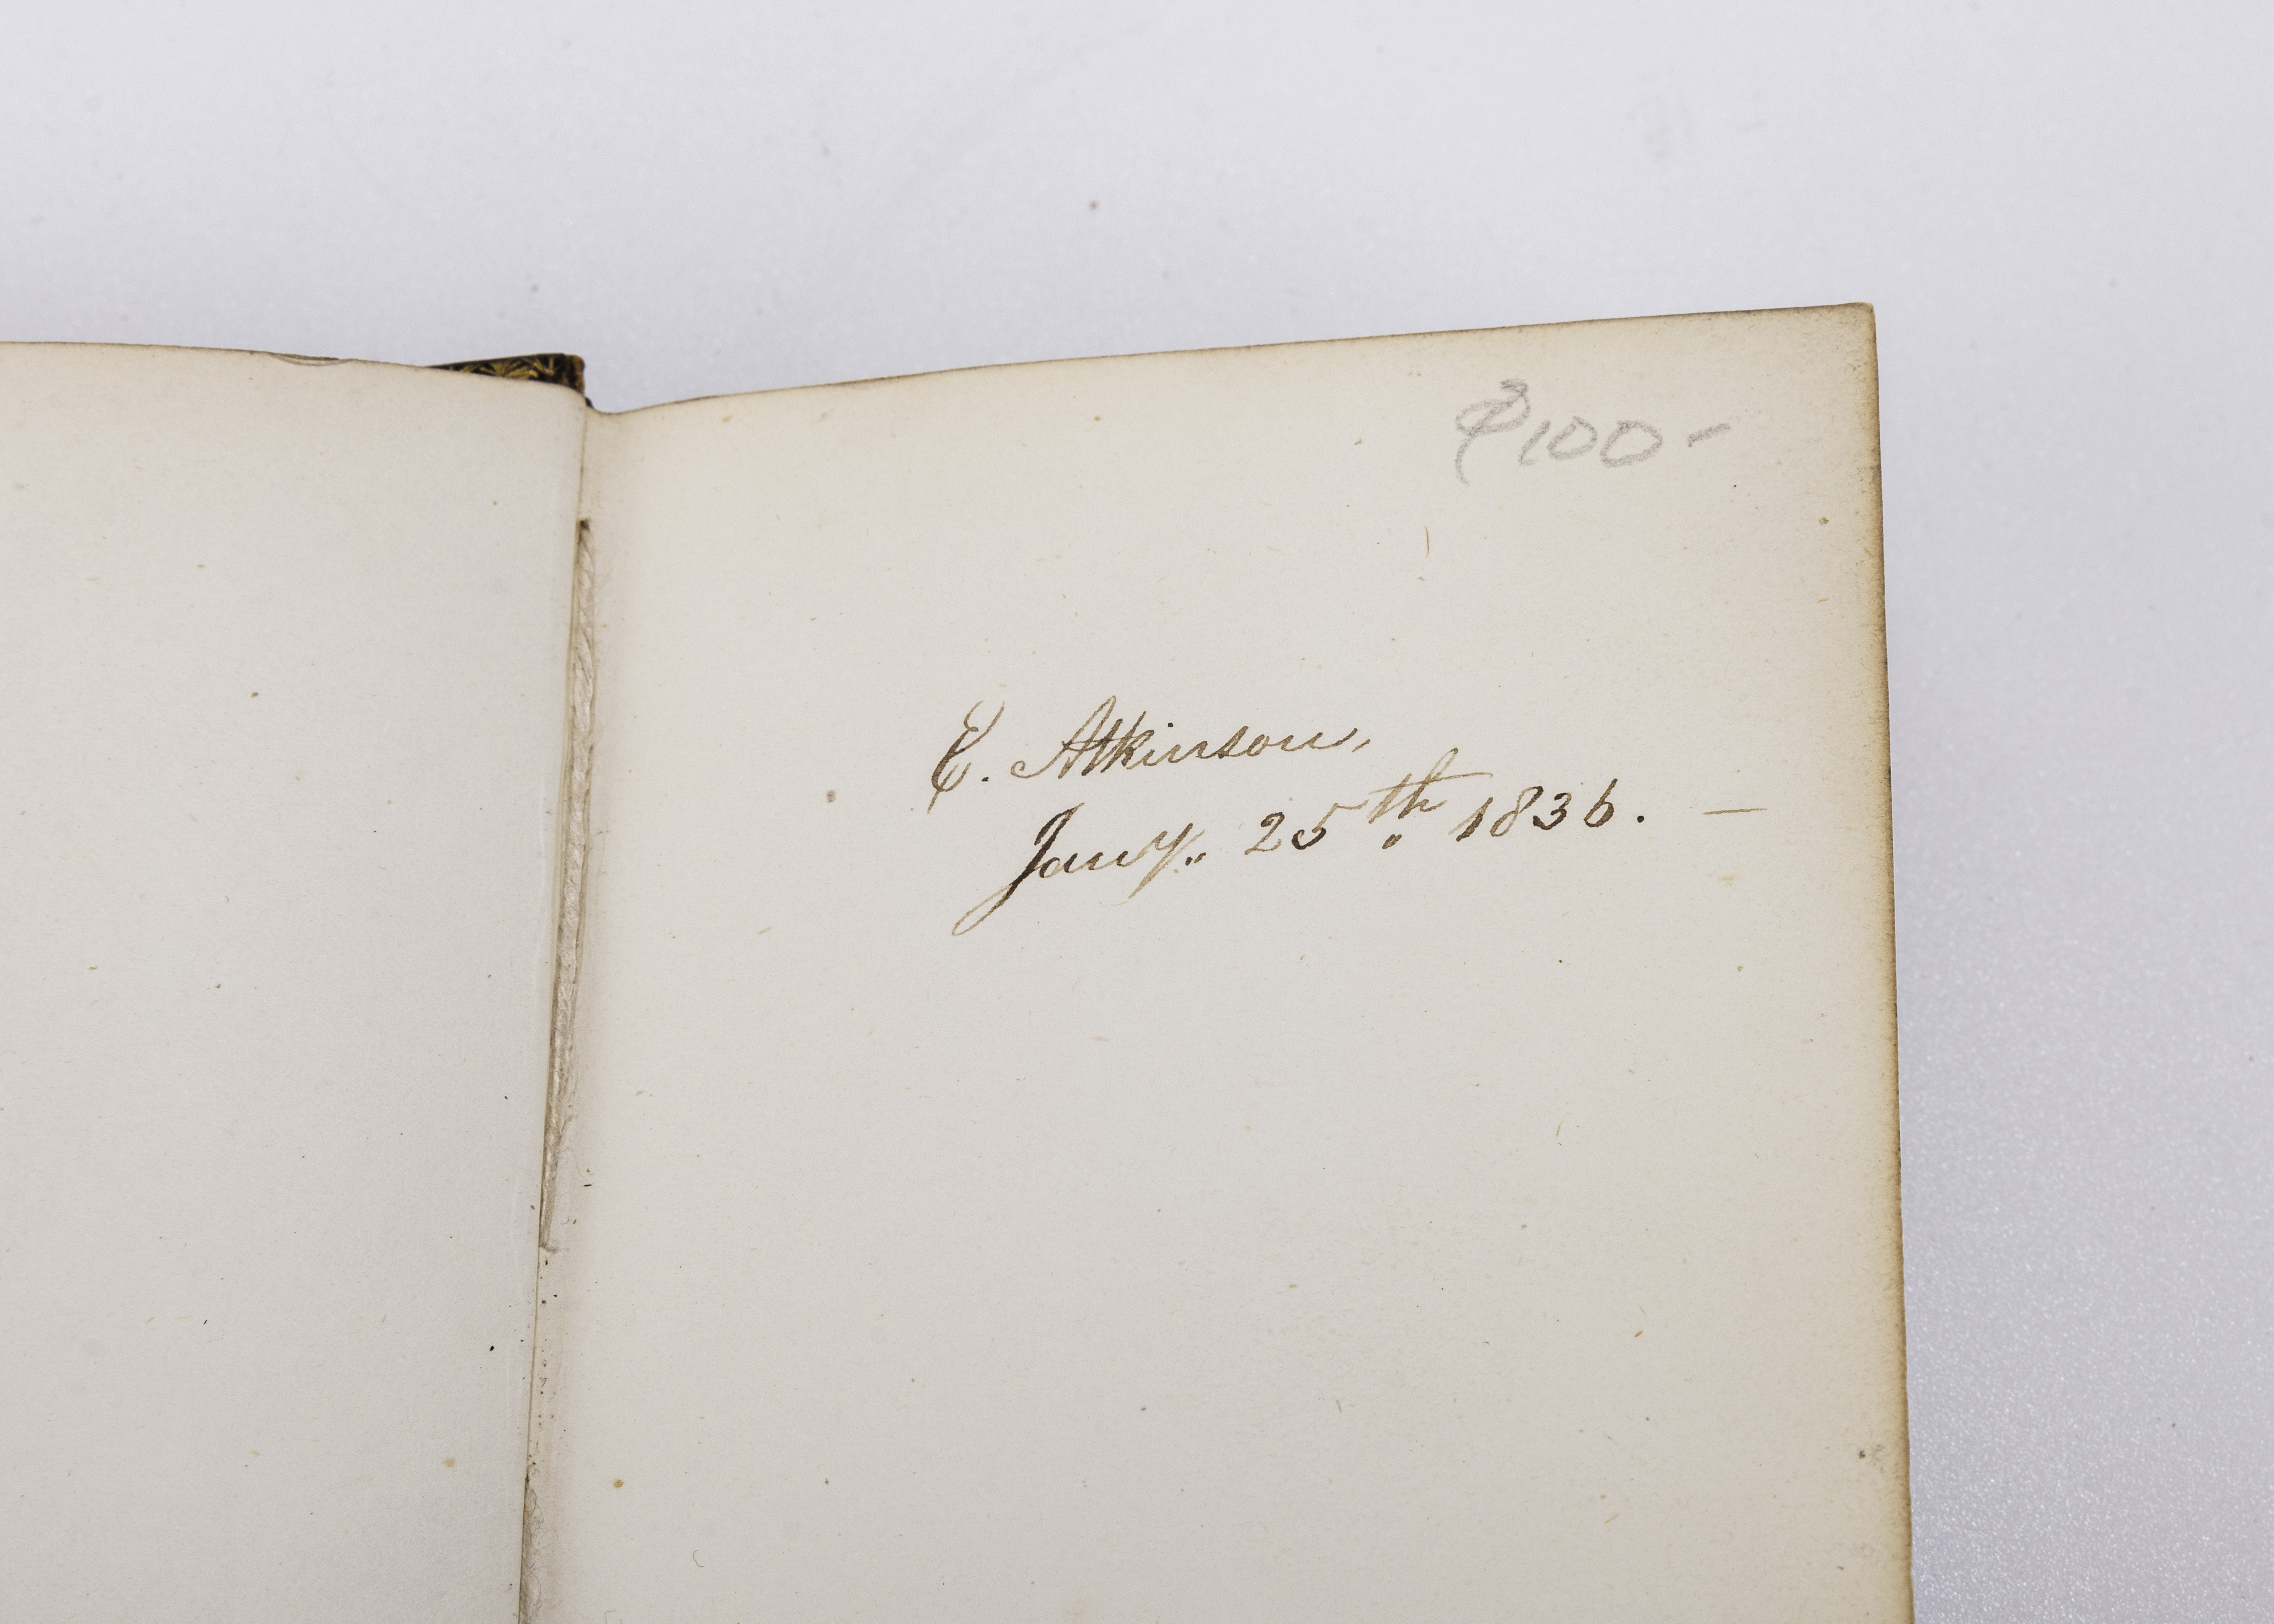 100-
E. Atkinson,
Jany.. 25th. 1836. —